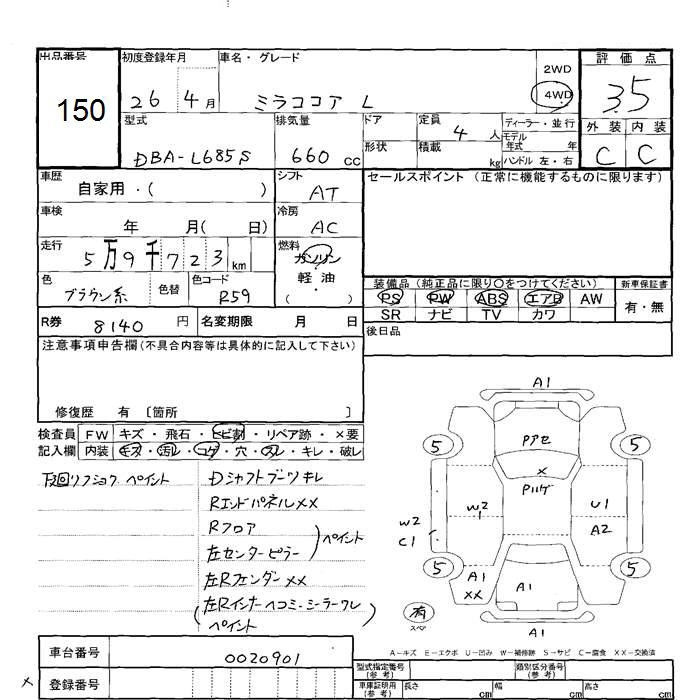 出品番号 初度登録年月 車名・グレード 2WD 評価点
150 26 4月 ミラココア L 4WD 3.5
型式 排気量 ドア 定員 4人 ディーラー・並行 外装 内装
モデル年式 年
DBA-L685S 660cc 形状 積載 kg ハンドル 左・右 C C
車歴 自家用・( ) シフト AT セールスポイント (正常に機能するものに限ります)
車検 年 月( 日) 冷房 AC
走行 5万9千723km 燃料 ガソリン
軽油
( )
色 ブラウン系 色替 色コード R59
装備品 (純正品に限り○をつけてください) 新車保証書
PS PW ABS エアB AW 有・無
SR ナビ TV カワ
R券 8140円 名変期限 月 日
後日品
注意事項申告欄(不具合内容等は具体的に記入して下さい)
修復歴 有 〔箇所 〕
検査員 FW キズ・飛石・ヒビ割・リペア跡・×要
記入欄 内装 キズ・汚レ・コゲ・穴・スレ・キレ・破レ
ペイント
Dシャフトブーツキレ
RエンドパネルXX
Rフロア
左センターピラー
ペイント
左RフェンダーXX
(左Rインナーヘコミ・シーラーワレ
ペイント
A1
Pアセ
5 5
X
Pハゲ
W2 U1
W2 A2
C1
5 5
A1 A1
XX
有
スペア
A1
A-キズ E-エクボ U-凹み W-補修跡 S-サビ C-腐食 XX-交換済
車台番号 0020901
型式指定番号(参考) 類別区分番号(参考)
登録番号
車庫証明用(参考) 長さ cm 幅 cm 高さ cm